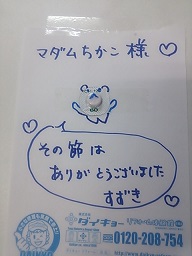 マダムちかこ様
その節は
ありがとうございました
すずき
ダイキョー
0120-208-754